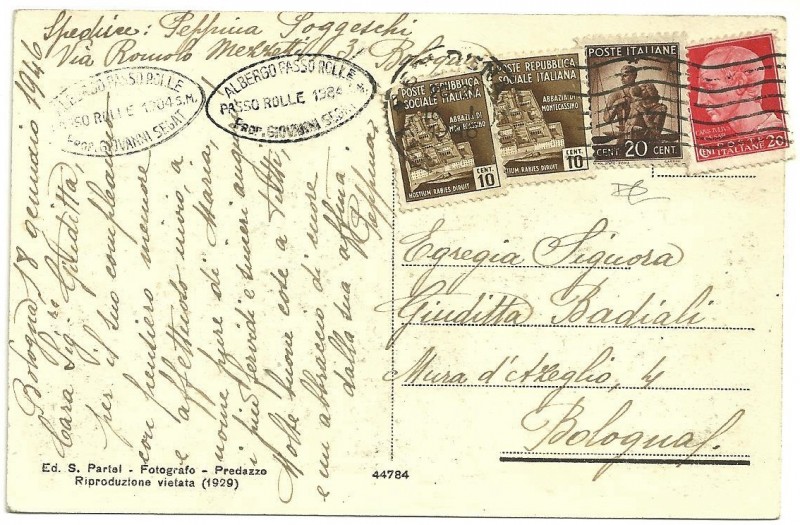 Spedisce: Peppina Soggeschi
Via Romolo Mezzetti 3, Bologna
ALBERGO PASSO ROLLE
PASSO ROLLE 1984 S.M.
PROP. GIOVANNI SEGAT
ALBERGO PASSO ROLLE
PASSO ROLLE 1984 S.M.
PROP. GIOVANNI SEGAT
POSTE REPUBBLICA
SOCIALE ITALIANA
ABBAZIA DI
MONTECASSINO
CENT. 10
HOSTIUM RABIES DIRUIT
POSTE REPUBBLICA
SOCIALE ITALIANA
ABBAZIA DI
MONTECASSINO
CENT. 10
HOSTIUM RABIES DIRUIT
POSTE ITALIANE
CENT. 20 CENT.
ITALIANE 20
Bologna, 8 gennaio 1946
Cara Sig.ra Giuditta,
per il suo compleanno
con pensiero memore
e affettuoso unisco a
nome pure di Maria,
i più fervidi e sinceri auguri
Molte buone cose a tutti,
e un abbraccio di cuore
dalla sua aff.ma
Peppina
Egregia Signora
Giuditta Badiali
Mura d'Azeglio, 4
Bologna
Ed. S. Partel - Fotografo - Predazzo
Riproduzione vietata (1929)
44784